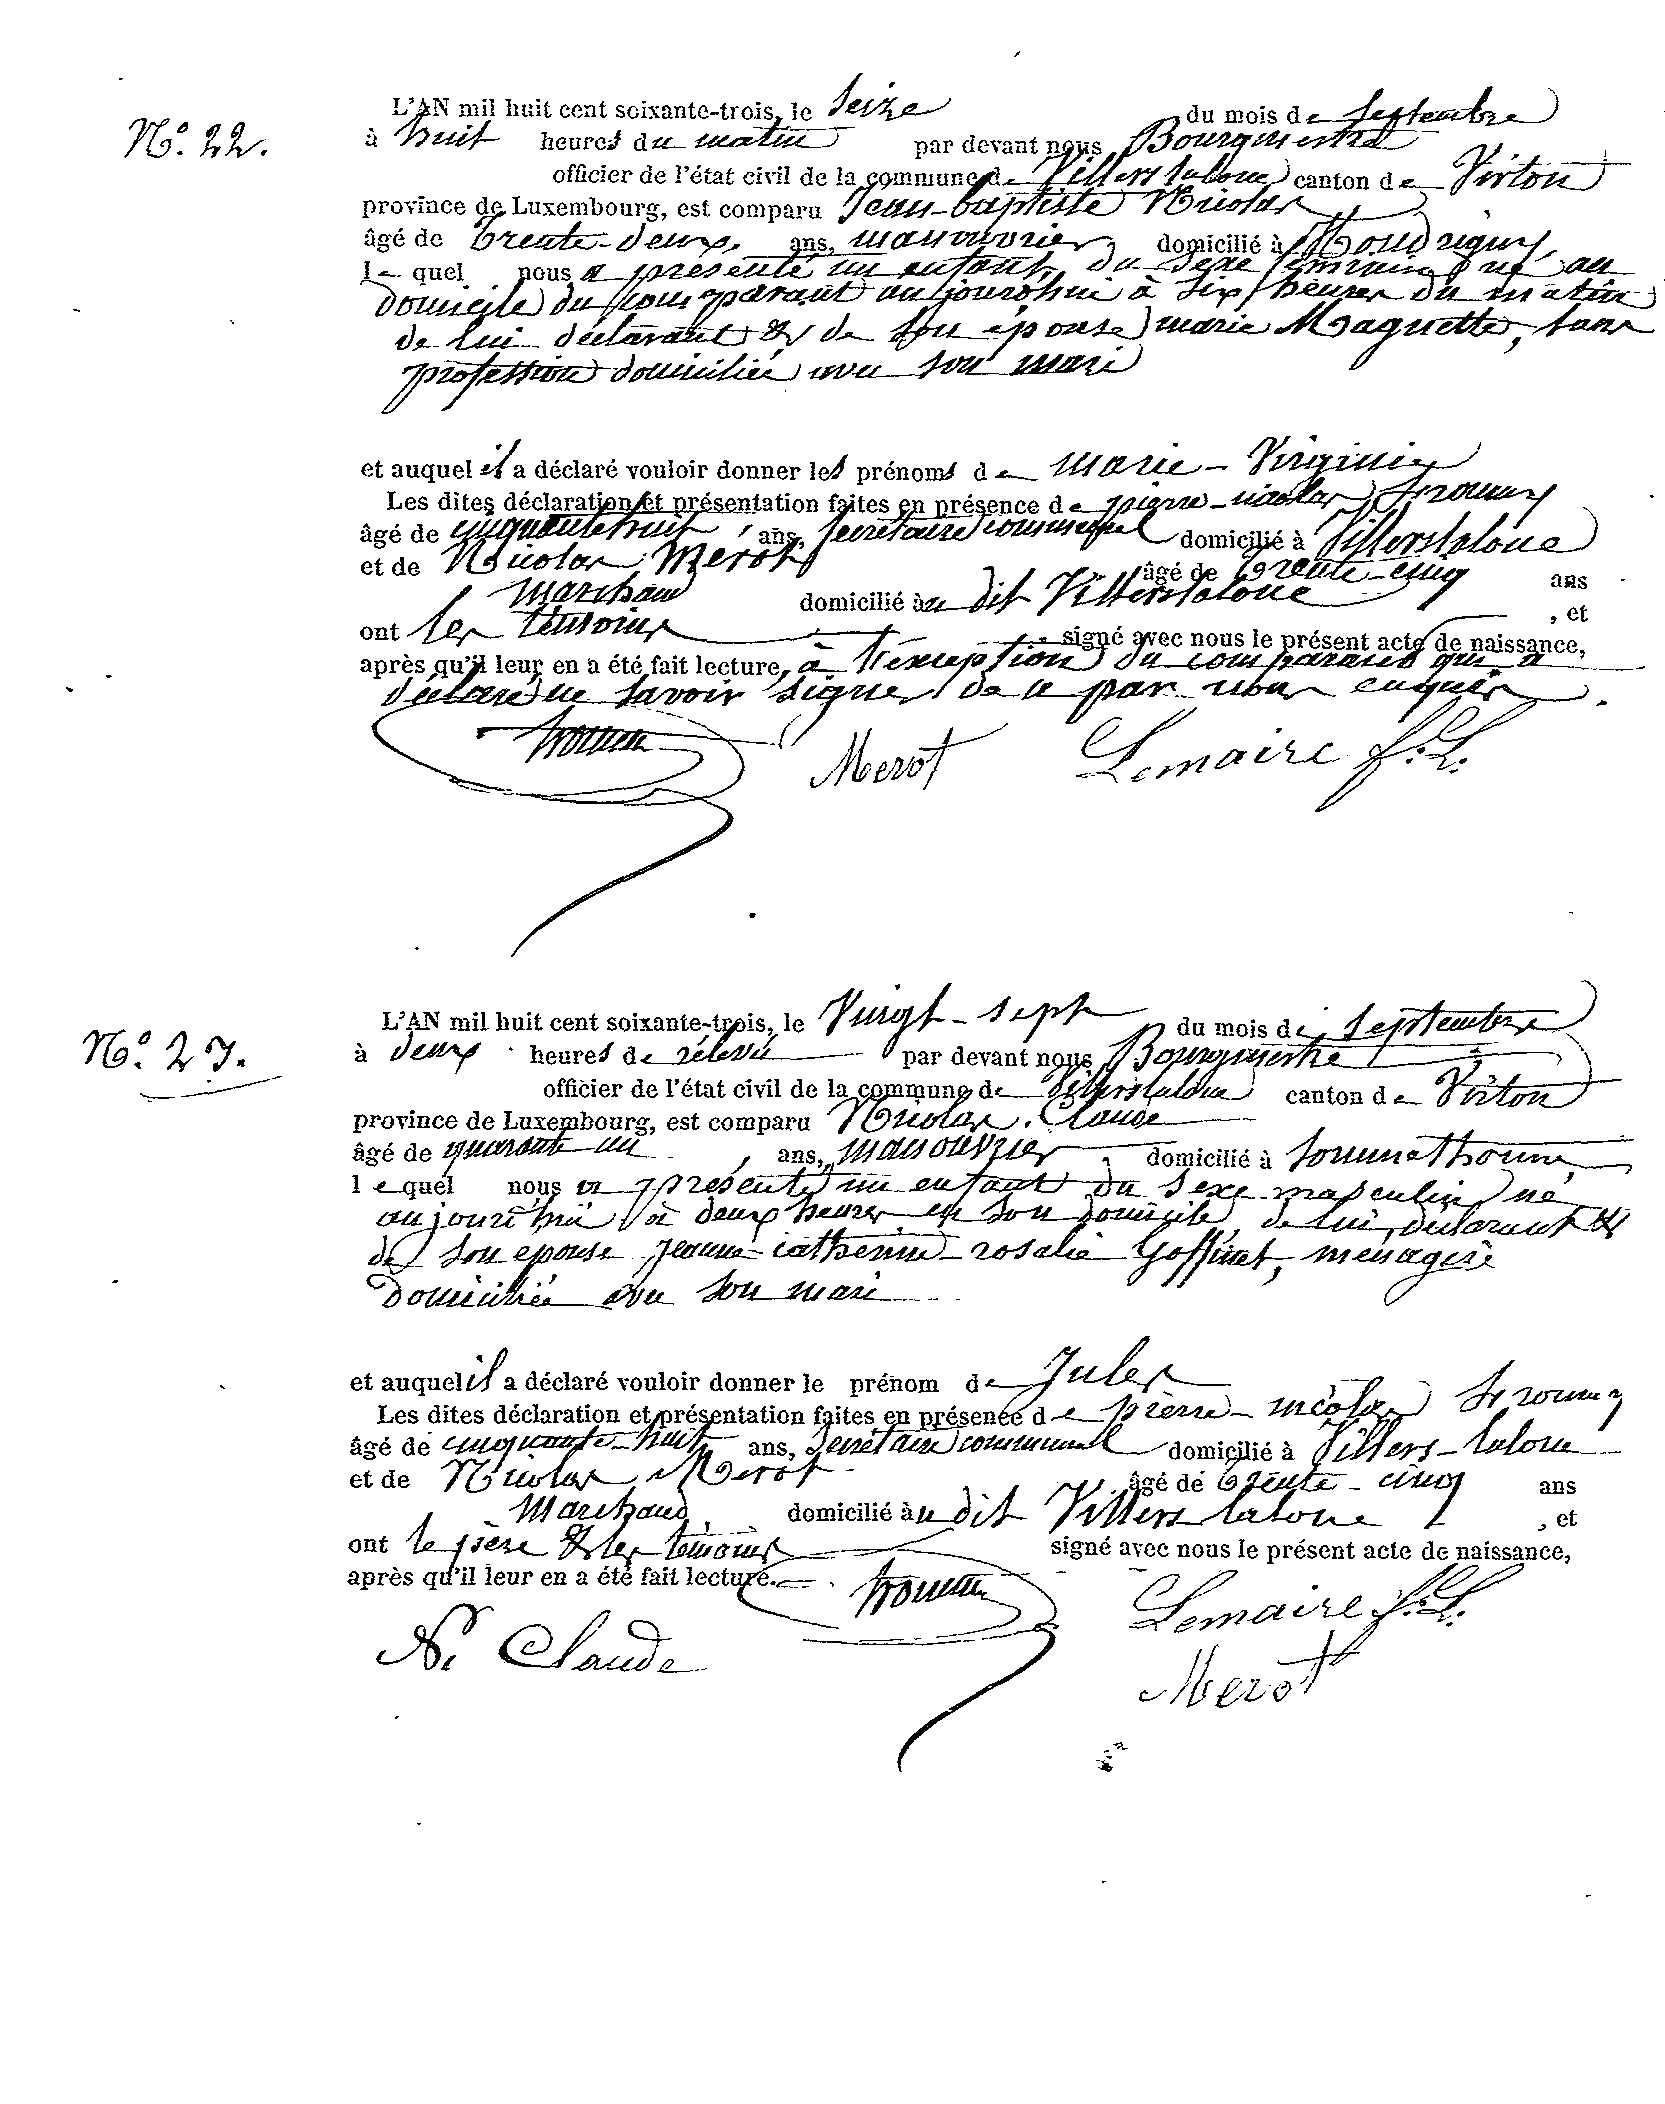 N.° 22.
L'AN mil huit cent soixante-trois, le seize du mois de Septembre
à huit heures du matin par devant nous Bourgmestre
officier de l'état civil de la commune de Villerslaloue canton de Virton
province de Luxembourg, est comparu Jean-baptiste Nicolas
âgé de trente-deux ans, manouvrier, domicilié à
lequel nous a présenté un enfant, du sexe féminin né au
domicile du comparant aujourd'hui à six heures du matin
de lui déclarant & de son épouse marie Maguette, sans
profession domiciliée avec son mari
et auquel il a déclaré vouloir donner les prénoms de marie-Virginie
Les dites déclaration et présentation faites en présence de pierre-nicolas
âgé de cinquante huit ans, Secrétaire communal domicilié à Villerslaloue
et de Nicolas Merot âgé de trente-cinq ans
Marchand domicilié au dit Villerslaloue, et
ont les témoins signé avec nous le présent acte de naissance,
après qu'il leur en a été fait lecture, à l'exception du comparant qui a
déclaré ne savoir signer de ce par nous enquis.
Merot Lemaire f.L.
N.° 23.
L'AN mil huit cent soixante-trois, le Vingt-sept du mois de Septembre
à deux heures de rélevée par devant nous Bourgmestre
officier de l'état civil de la commune de Villerslaloue canton de Virton
province de Luxembourg, est comparu Nicolas Claude
âgé de quarante un ans, manouvrier domicilié à Sommethonne,
lequel nous a présenté un enfant du sexe masculin né
aujourd'hui à deux heures en son domicile, de lui, déclarant &
de son épouse Jeanne-catherine-rosalie Goffinet, ménagère
Domiciliée avec son mari
et auquel il a déclaré vouloir donner le prénom de Jules
Les dites déclaration et présentation faites en présence de pierre-nicolas
âgé de cinquante-huit ans, Secrétaire communal domicilié à Villers-laloue
et de Nicolas Merot âgé de trente-cinq ans
Marchand, domicilié au dit Villers laloue, et
ont le père & les témoins signé avec nous le présent acte de naissance,
après qu'il leur en a été fait lecture.
Lemaire f.L.
N. Claude
Merot